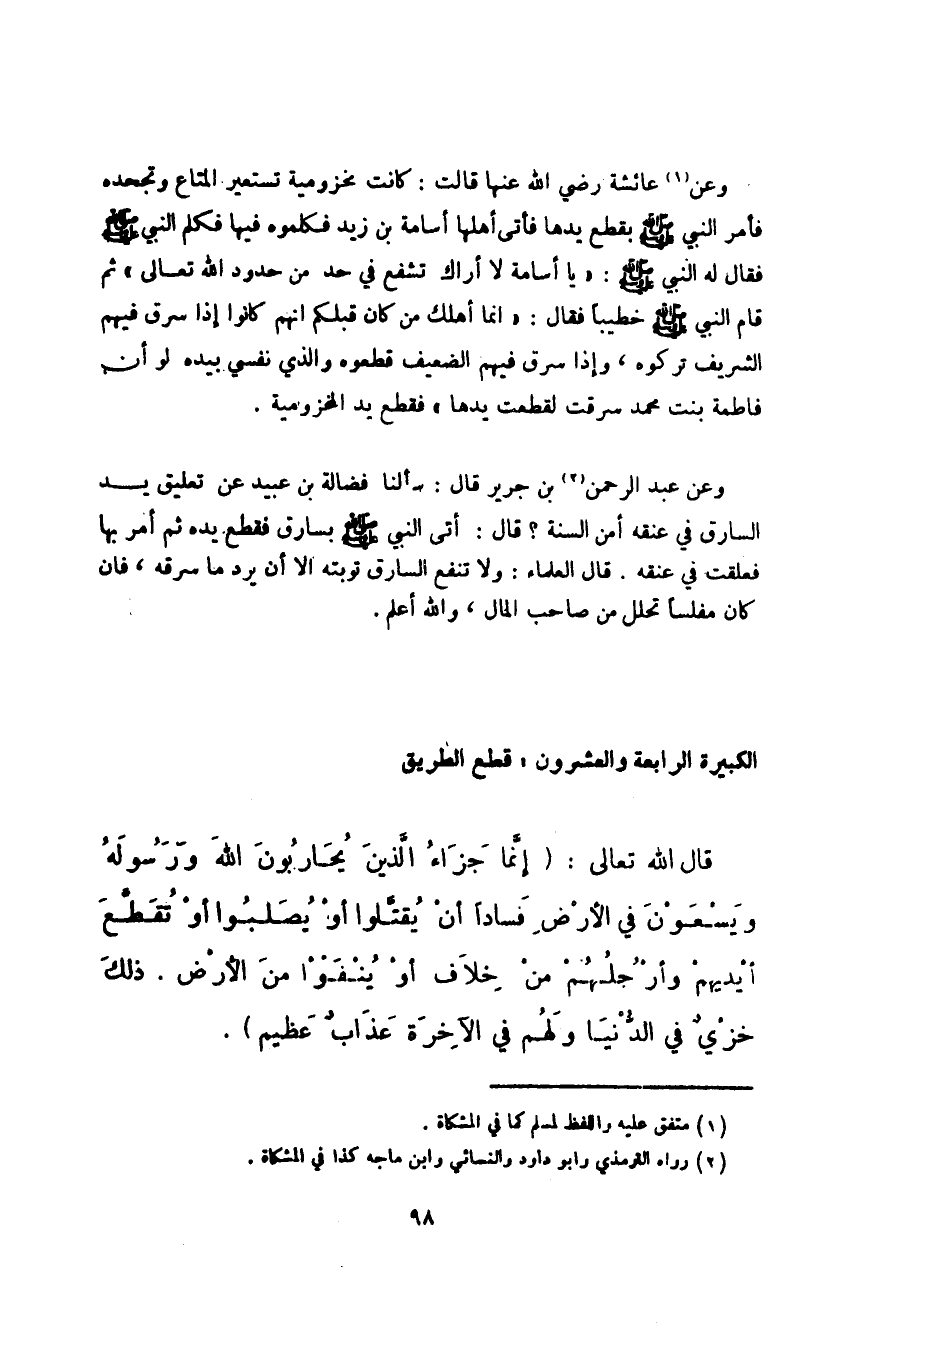 وعن(١) عائشة رضي الله عنها قالت : كانت مخزومية تستعير المتاع وتجحده
فأمر النبي ﷺ بقطع يدها فأتى أهلها أسامة بن زيد فكلموه فيها فكلم النبي ﷺ
فقال له النبي ﷺ : « يا أسامة لا أراك تشفع في حد من حدود الله تعالى » ثم
قام النبي ﷺ خطيباً فقال : « انما أهلك من كان قبلكم انهم كانوا إذا سرق فيهم
الشريف تركوه ، وإذا سرق فيهم الضعيف قطعوه والذي نفسي بيده لو أن
فاطمة بنت محمد سرقت لقطعت يدها » فقطع يد المخزومية .
وعن عبد الرحمن(٢) بن جرير قال : سألنا فضالة بن عبيد عن تعليق يد
السارق في عنقه أمن السنة ؟ قال : أتى النبي ﷺ بسارق فقطع يده ثم أمر بها
فعلقت في عنقه . قال العلماء : ولا تنفع السارق توبته الا أن يرد ما سرقه ، فان
كان مفلساً تحلل من صاحب المال ، والله أعلم .
الكبيرة الرابعة والعشرون : قطع الطريق
قال الله تعالى : ( إِنَّما جَزَاءُ الَّذينَ يُحَارِبُونَ اللهَ وَرَسُولَهُ
وَيَسْعَوْنَ في الأرْضِ فَساداً أنْ يُقتَّلوا أوْ يُصَلبُوا أوْ تُقَطَّعَ
أيْديهِمْ وأرْجلُهُمْ منْ خِلَاف أوْ يُنْفَوْا منَ الأرْض . ذلكَ
خزْيٌ في الدُّنْيَا وَلهُم في الآخِرَة عَذَابٌ عَظيم ) .
(١) متفق عليه واللفظ لمسلم كما في المشكاة .
(٢) رواه الترمذي وابو داود والنسائي وابن ماجه كذا في المشكاة .
٩٨